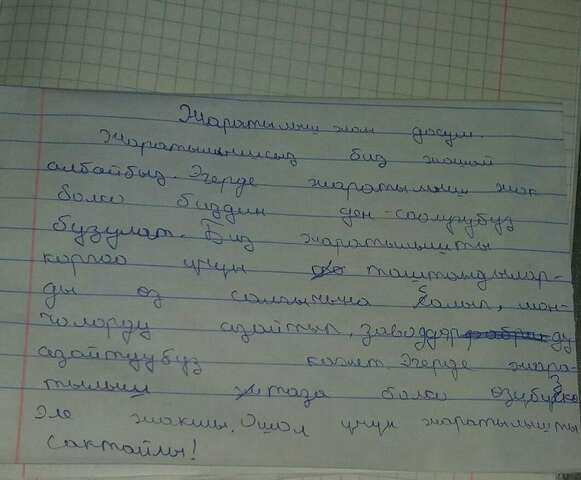 Жаратылыш жан досум.
Жаратылышсыз биз жашай
албайбыз. Эгерде жаратылыш жок
болсо биздин ден-соолугубуз
бузулат. Биз жаратылышты
коргоо үчүн таштандылар-
ды өз салгычына салып, мон-
чолорду азайтып, заводдорду
азайтуубуз кажет. Эгерде жара-
тылыш таза болсо өзүбүзгө
эле жакшы. Ошол үчүн жаратылышты
сактайлы!